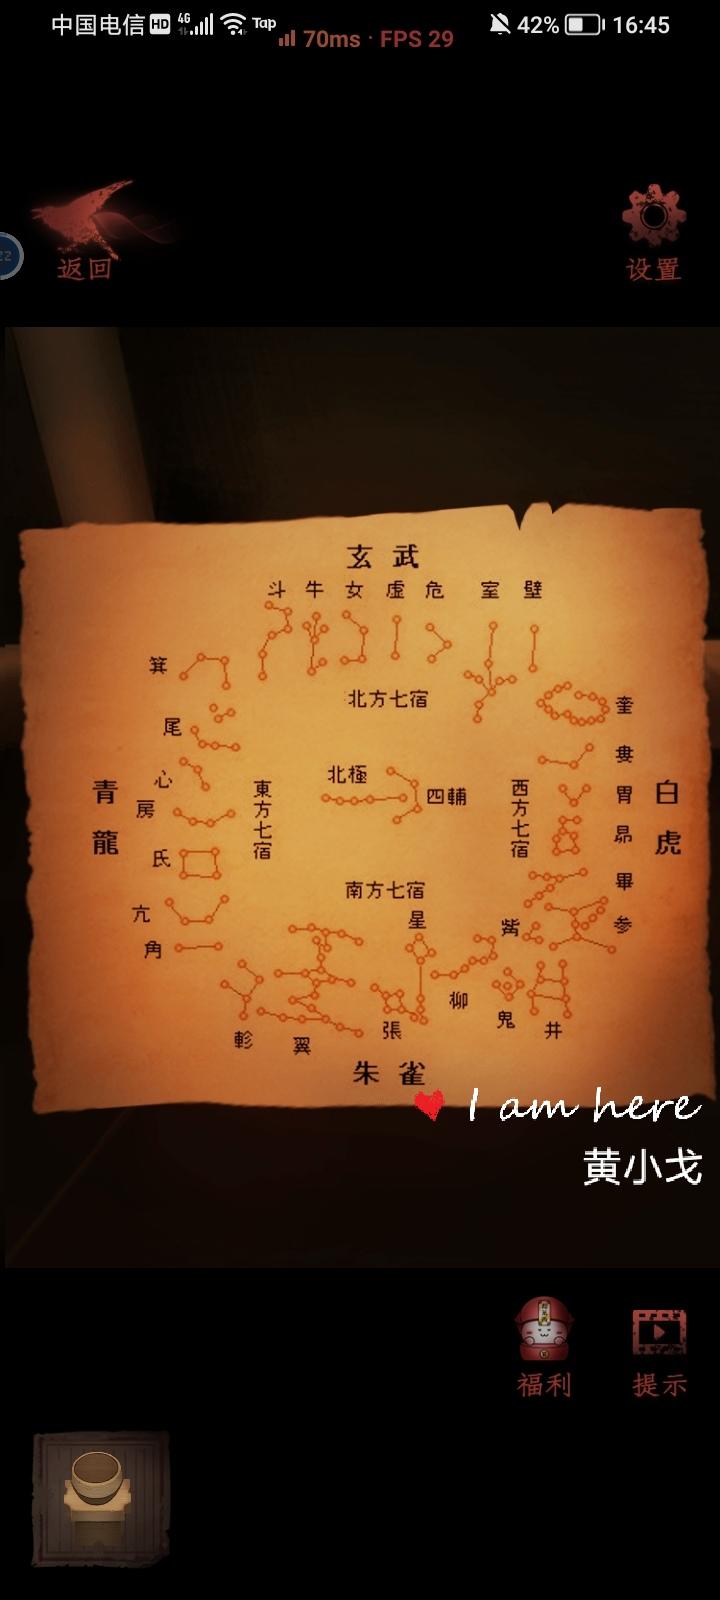 中国电信 HD 4G Tap 70ms · FPS 29 42% 16:45
返回 设置
玄武
斗 牛 女 虛 危 室 壁
箕
北方七宿
奎
尾
婁
心
北極
四輔
胃
青龍
東方七宿
西方七宿
白虎
房
昴
氐
畢
南方七宿
亢
星
觜
参
角
柳
鬼
張
井
軫
翼
朱雀
I am here
黄小戈
福利 提示